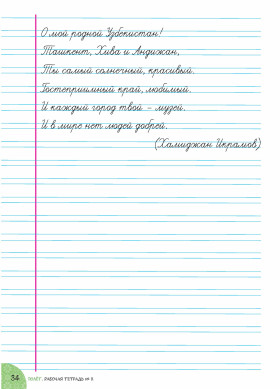 О мой родной Узбекистан!
Ташкент, Хива и Андижан,
Ты самый солнечный, красивый.
Гостеприимный край, любимый.
И каждый город твой – музей.
И в мире нет людей добрей.
(Хамиджан Икрамов)
34 РАБОЧАЯ ТЕТРАДЬ №